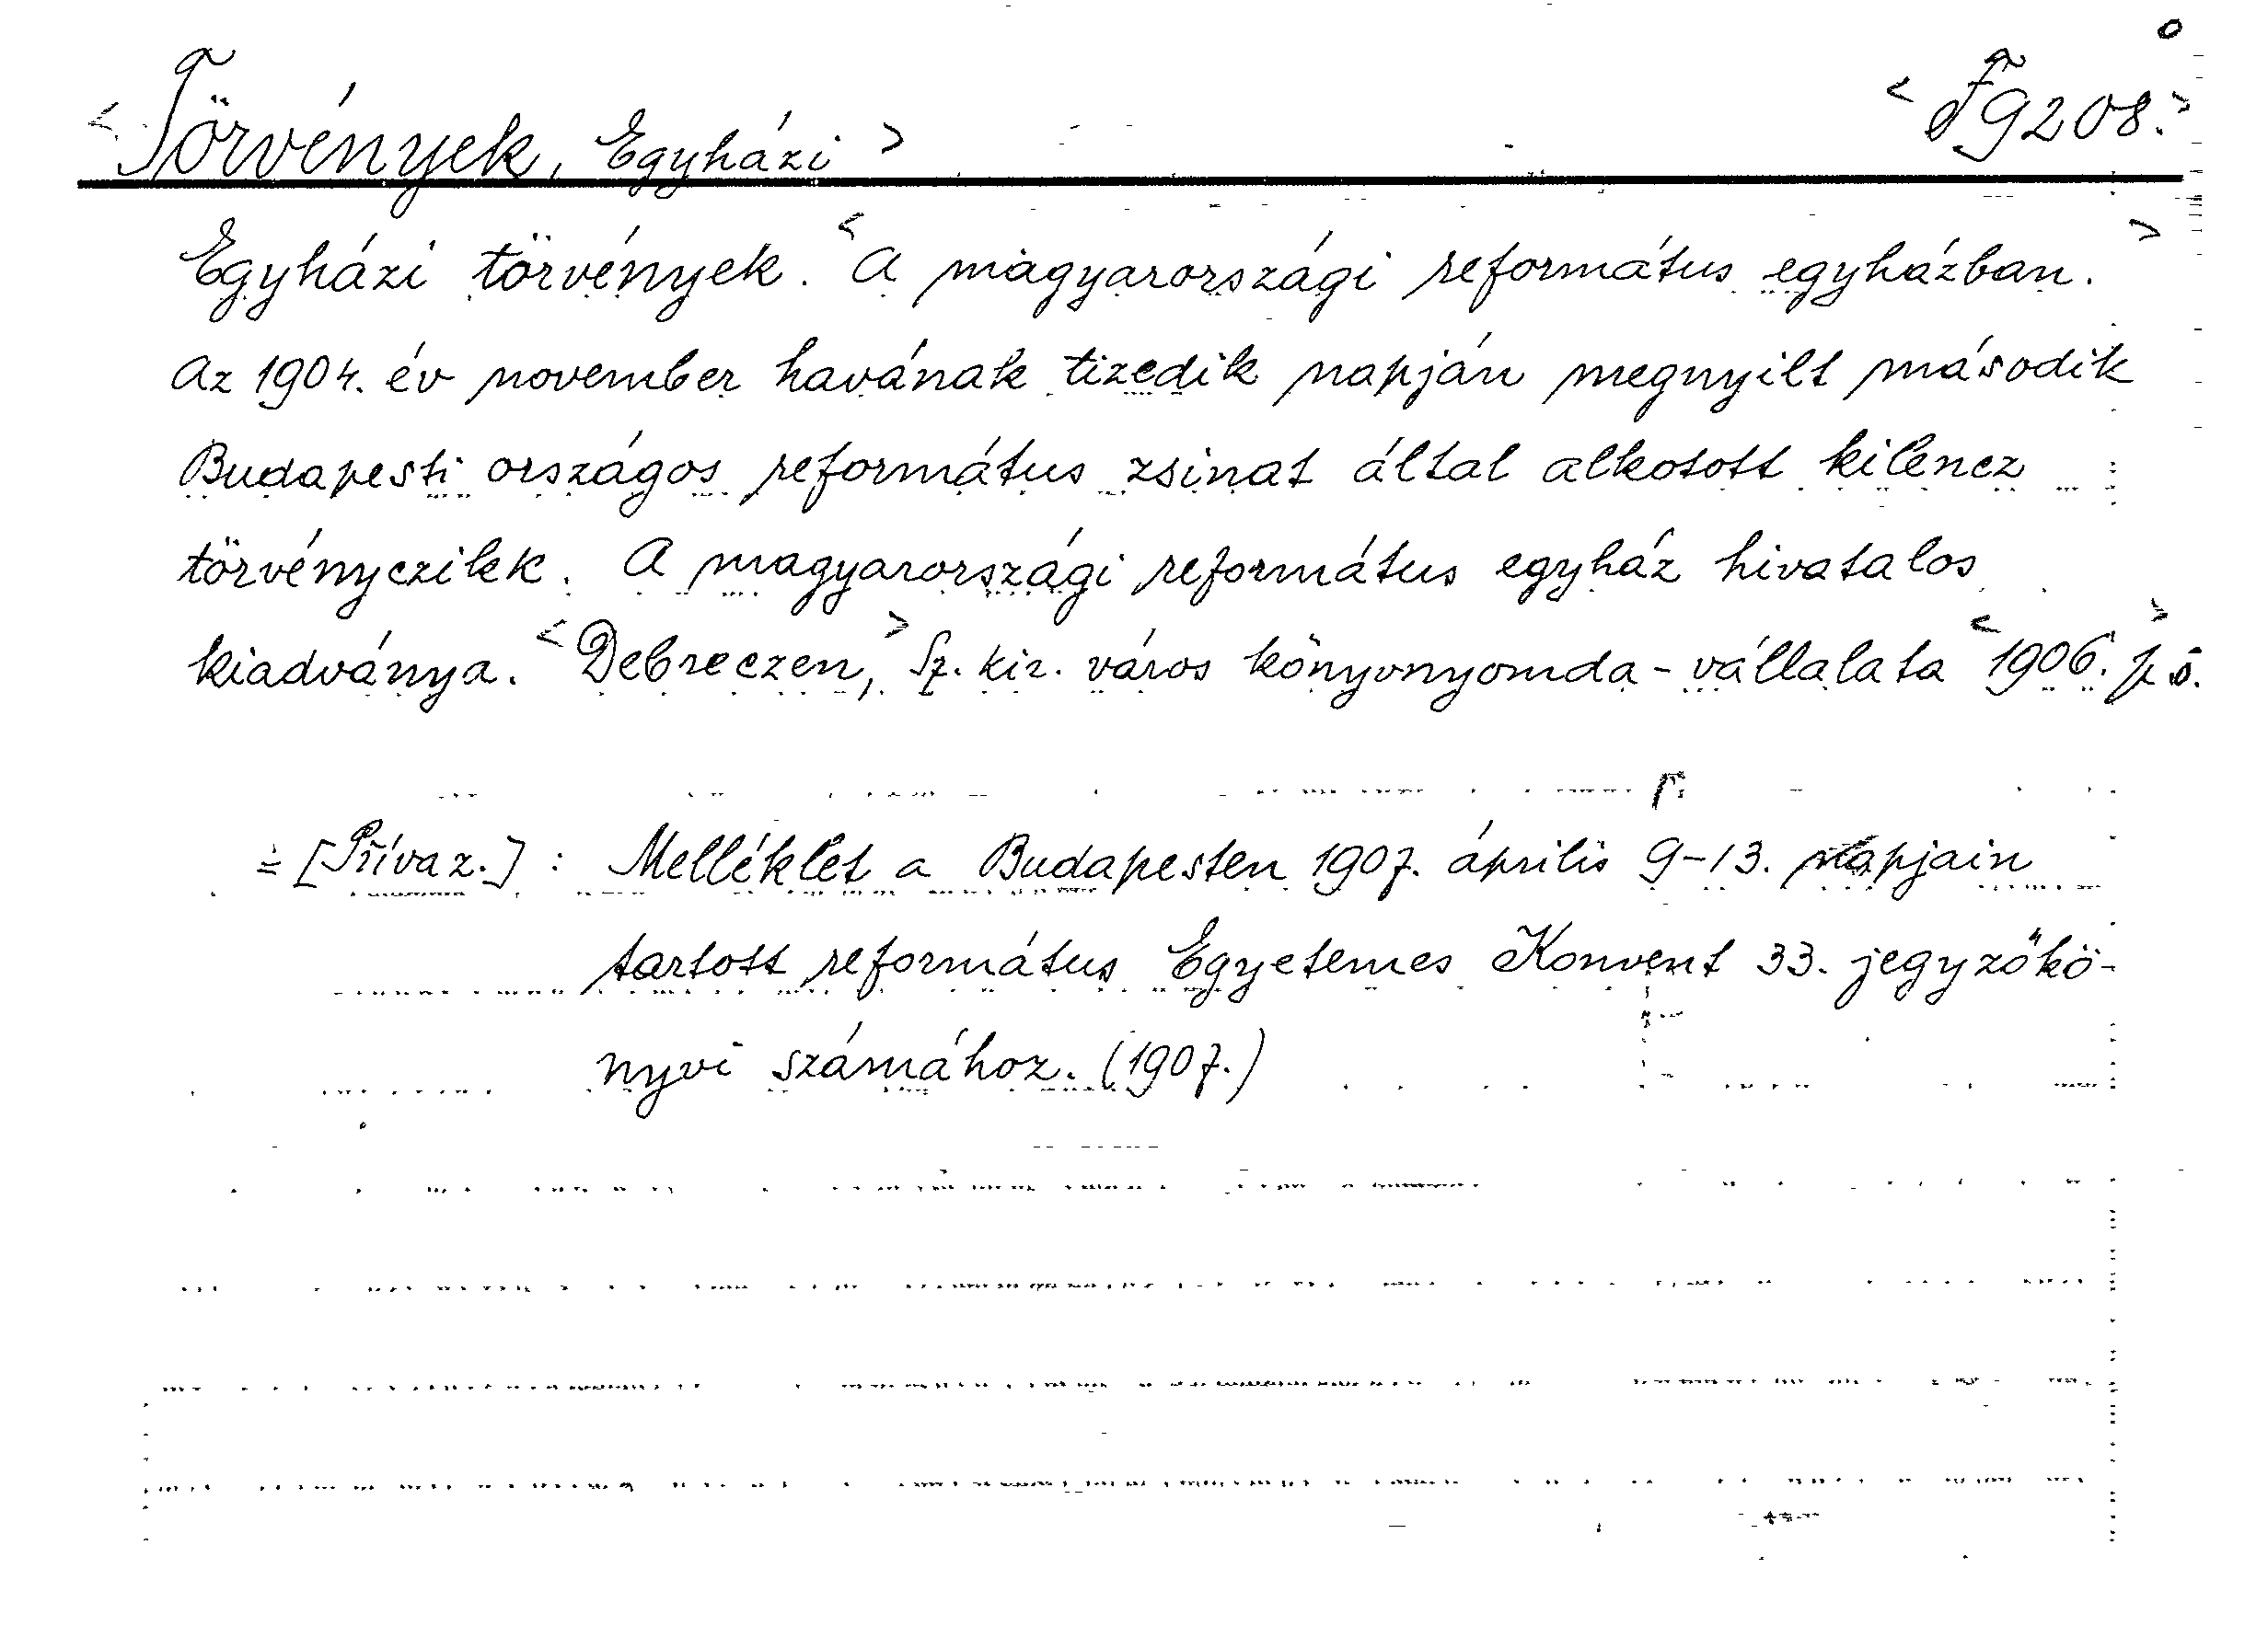 <Törvények, Egyházi> <Fg208.>
Egyházi törvények. <A magyarországi református egyházban.>
Az 1904. év november havának tizedik napján megnyilt második
Budapesti országos református zsinat által alkotott kilencz
törvényczikk. A magyarországi református egyház hivatalos
kiadványa. <Debreczen,> Sz. kir. város könyvnyomda-vállalata <1906.>
= [Přívaz.] : Melléklet a Budapesten 1907. április 9-13. napjain
tartott református Egyetemes Konvent 33. jegyzőkö-
nyvi számához. (1907.)